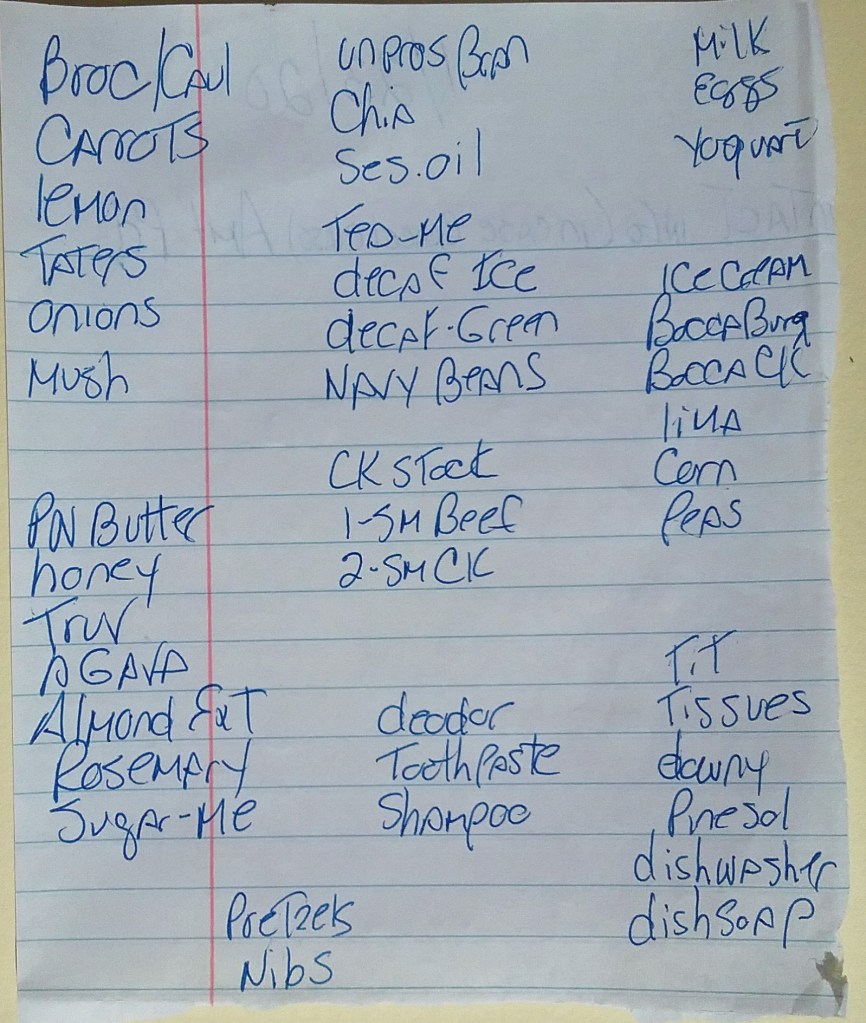 Broc/Caul
Carrots
lemon
Taters
onions
Mush
PN Butter
honey
Truv
AGAVA
Almond Ext
Rosemary
Sugar-Me
Pretzels
Nibs
unpros Bran
Chia
Ses.oil
Tea-Me
decaf Ice
decaf-Green
NAVY BEANS
CK STock
1-SM Beef
2-SM CK
deodor
ToothPaste
Shampoo
Milk
Eggs
Yoquart
Ice Cream
BoccaBurg
Bocca CK
lima
Corn
Peas
T.T
Tissues
downy
Pinesol
dishwasher
dishsoap